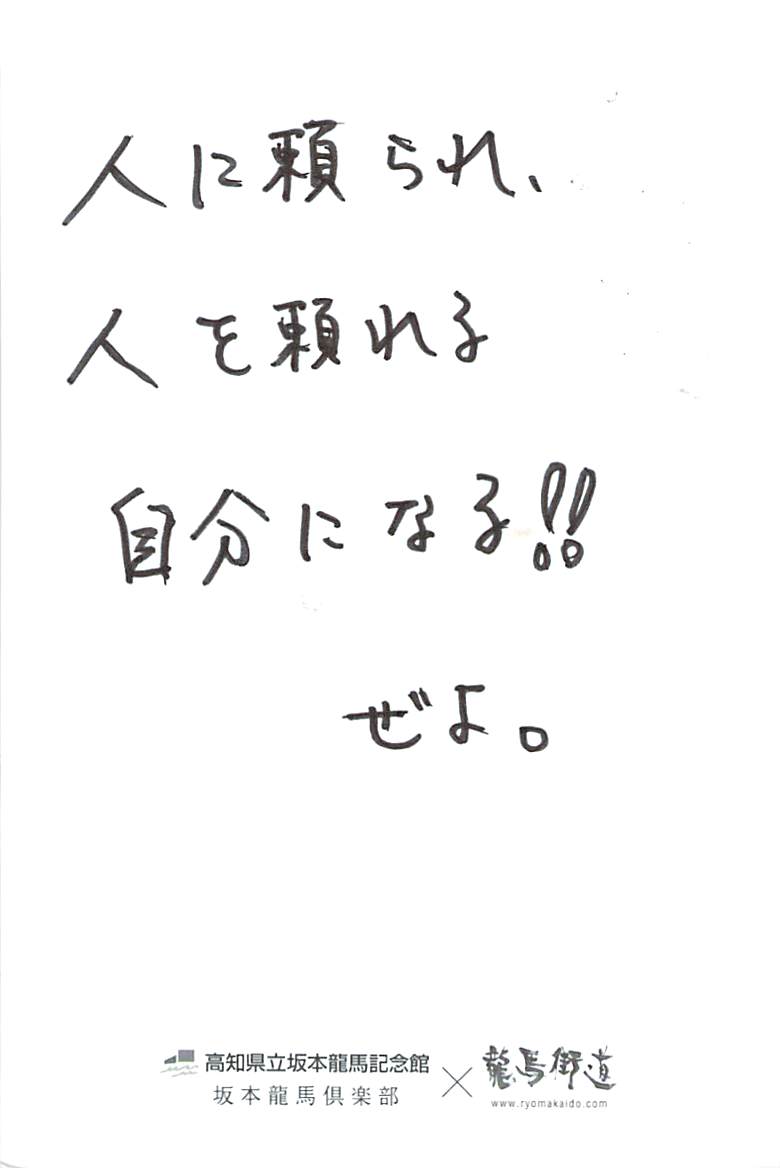 人に頼られ、
人を頼れる
自分になる!!
ぜよ。
高知県立坂本龍馬記念館
坂本龍馬倶楽部
×
龍馬街道
www.ryomakaido.com